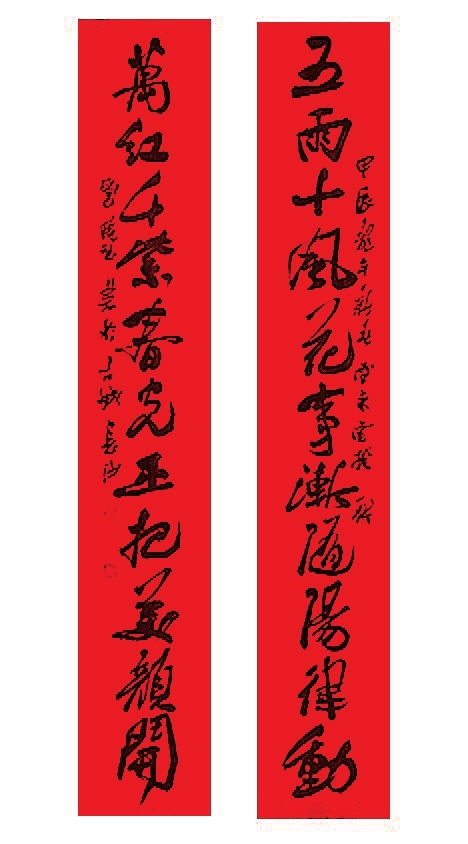 五雨十風花事漸隨陽律動
甲辰龍年新春
萬紅千紫春光正抱美顏開
書於古城長沙